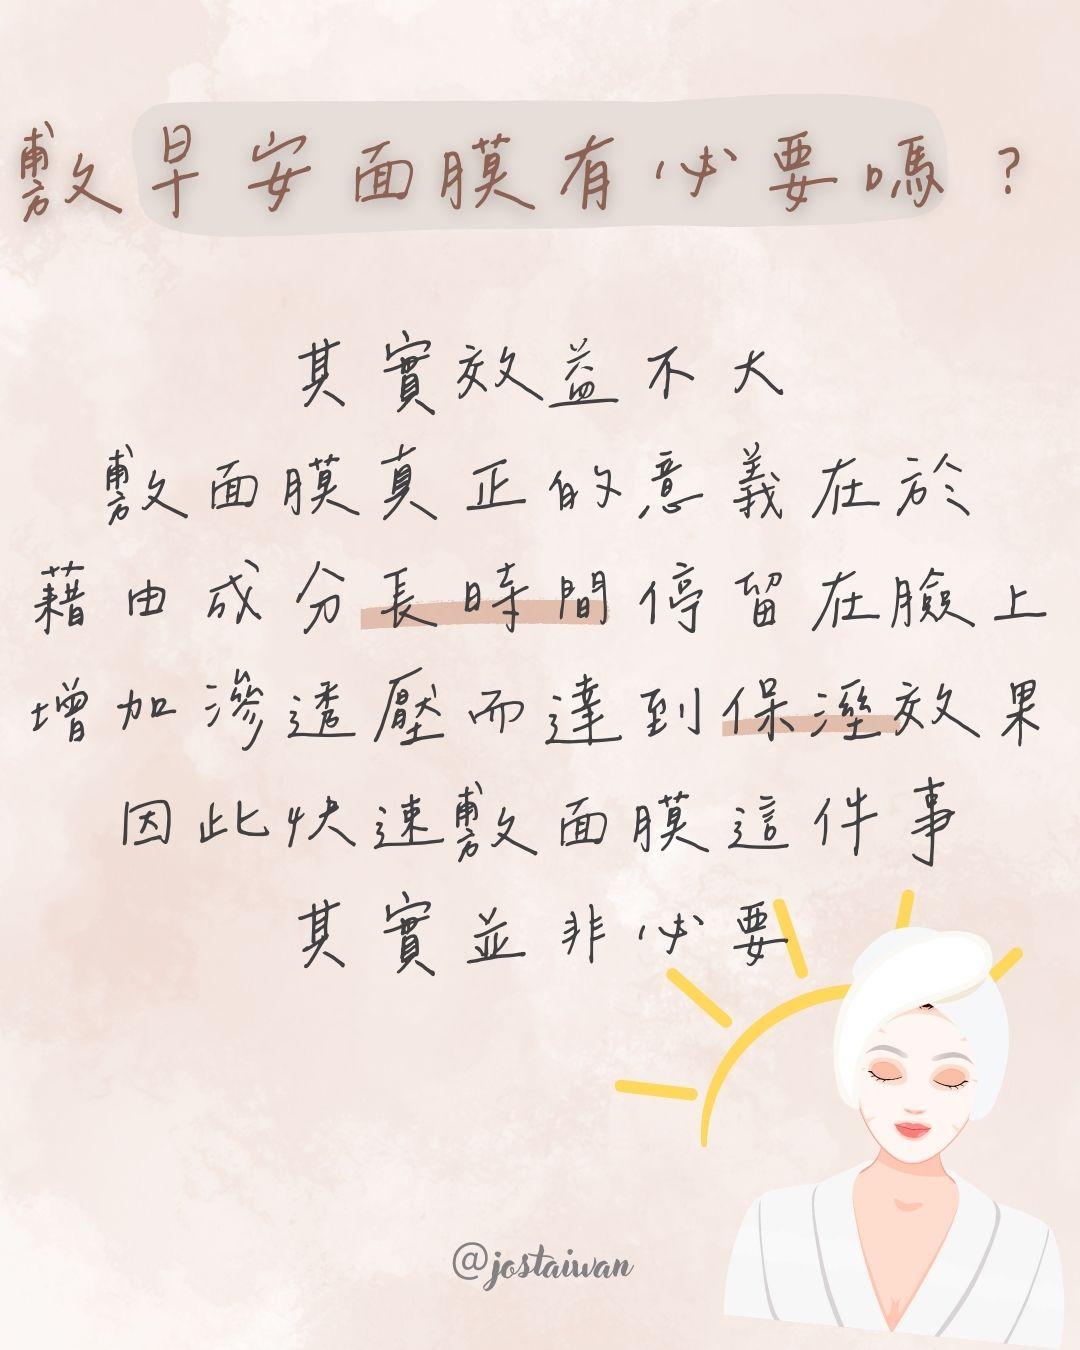 敷早安面膜有必要嗎？
其實效益不大
敷面膜真正的意義在於
藉由成分長時間停留在臉上
增加滲透壓而達到保溼效果
因此快速敷面膜這件事
其實並非必要
@jostaiwan